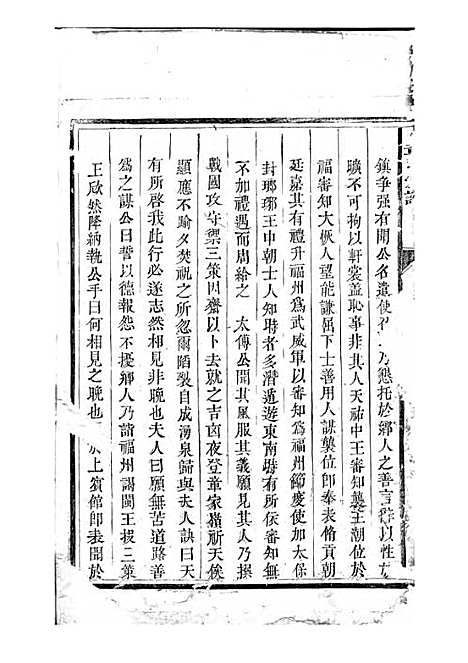 鎮爭强有聞公名遣使 乃懇托於鄉人之善言 以性
曠不可拘以軒裳蓋恥事非其人天祐中王審知襲王潮位於
福審知大恢人望能謙屈下士善用人謀襲位卽奉表脩貢朝
廷嘉其有禮升福州爲武威軍以審知爲福州節度使加太保
封瑯琊王中朝士人知時者多潛遁遊東南時有所依審知無
不加禮遇而周給之 太傅公聞其風服其義願見其人乃撰
戰國攻守禦三策因齋以卜去就之吉凶夜登童家嶺祈天俟
顯應不踰夕焚祝之所忽爾陷裂自成湧泉歸與夫人訣曰天
有所啓我此行必遂志然相見非晚也夫人曰願無苦道路善
爲之謀公曰誓以德報怨不擾鄉人乃詣福州謁閩王拔三策
王欣然降納執公手曰何相見之晚也 於上賓館卽表聞於